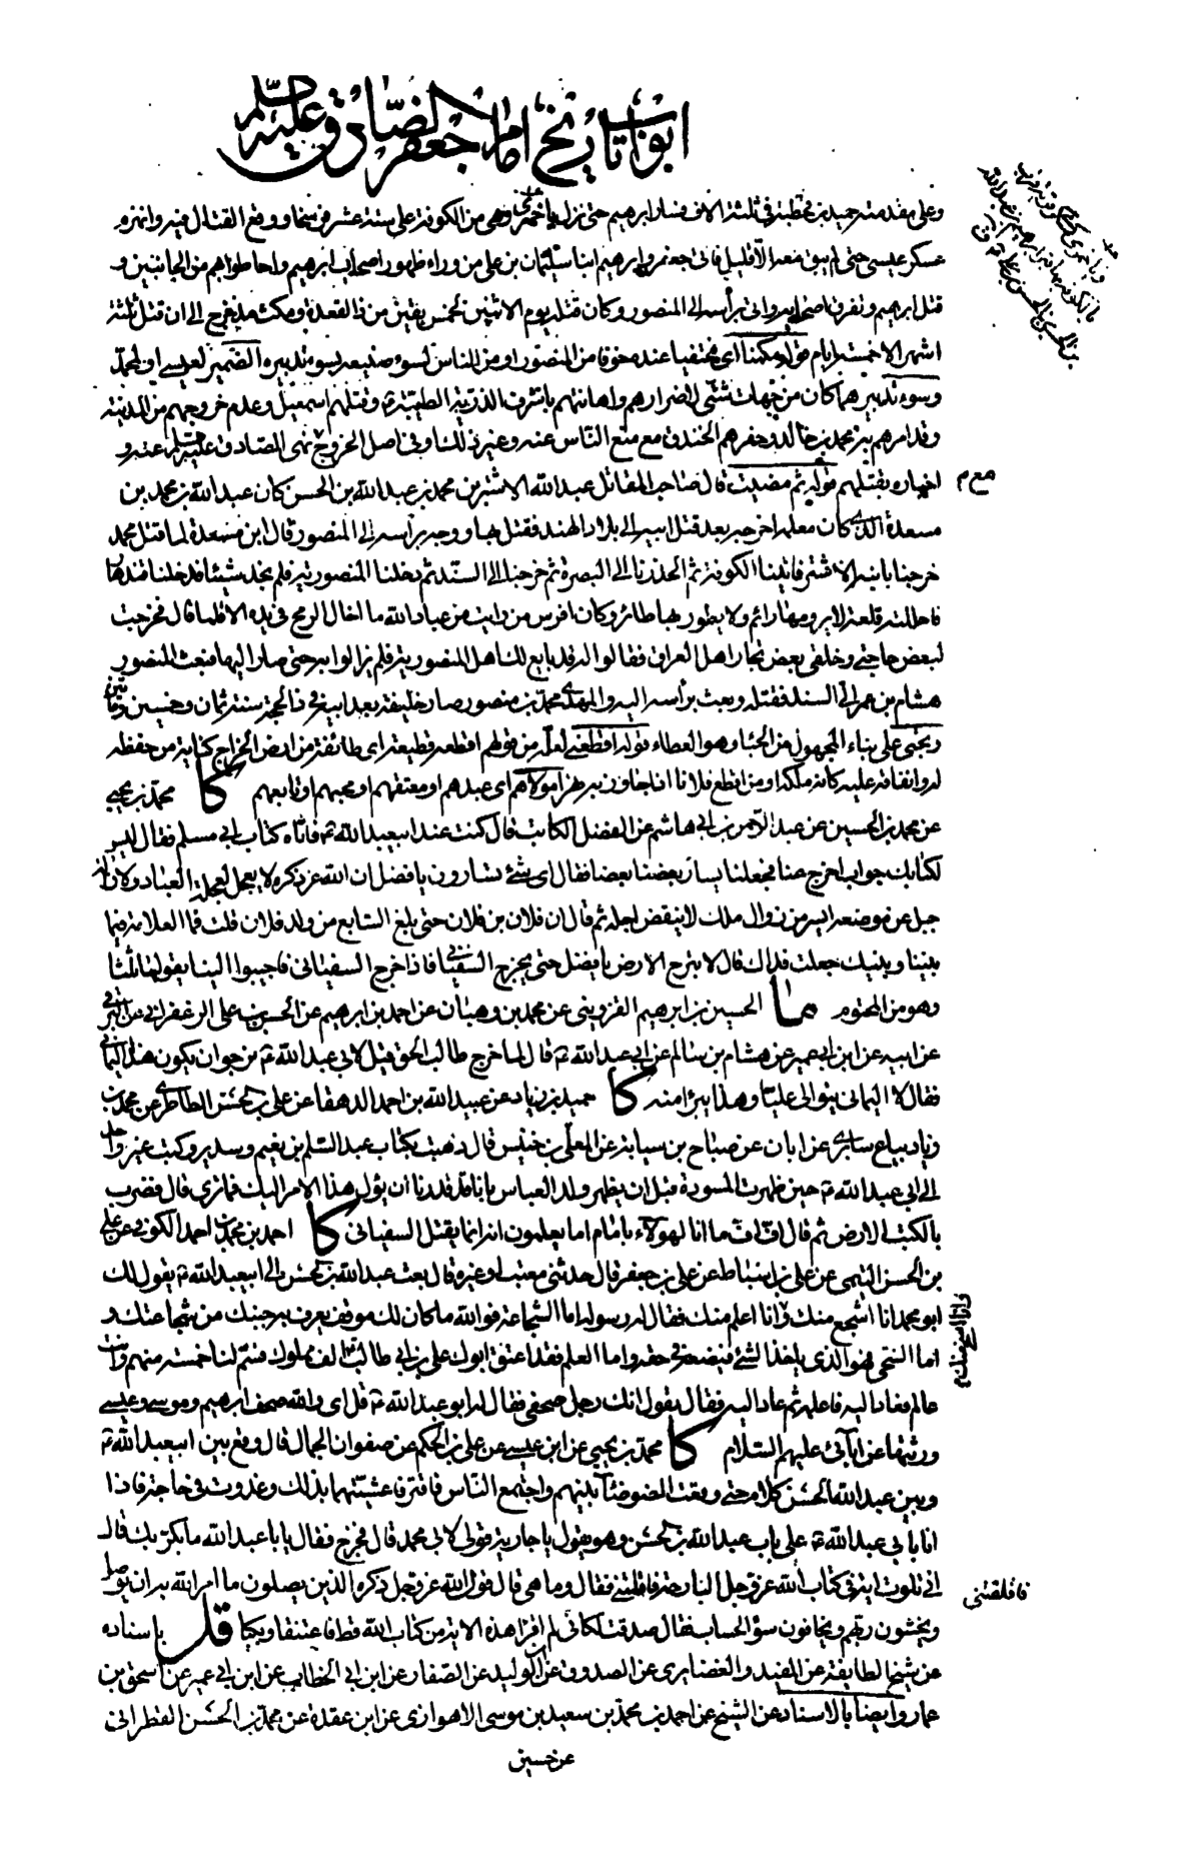 ابواب تاريخ امام جعفر الصادق عليه السلم
وعلى مقدمته حميد بن قحطبة في ثلثة الاف فسار ابرهيم حتى نزل باخمرى وهي من الكوفة على ستة عشر فرسخا ووقع القتال فيه وانهزم
عسكر عيسى حتى لم يبق معه الا قليل فاتى جعفر وابرهيم ابنا سليمان بن علي من وراء ظهور اصحاب ابرهيم واحاطوا بهم من الجانبين و
قتل ابرهيم وتفرق اصحابه واتي برأسه الى المنصور وكان قتله يوم الاثنين لخمس بقين من ذي القعدة ومكث مذ خرج الى ان قتل ثلثة
اشهر الا خمسة ايام قوله مكمنا اي مختفيا عنده خوفا من المنصور او من الناس لسوء صنيعه بسوء تدبيره الضمير لعيسى او لمحمد
وسوء تدبيرهما كان من جهات شتى لاضرارهم واهانتهم باشرف الذرية الطيبة وقتلهم اسمعيل وعدم خروجهم من المدينة
وقد امرهم به محمد بن خالد وحفرهم الخندق مع منع الناس عنه وغير ذلك او في اصل الخروج مع نهي الصادق عليه السلم عنه و
اخباره بقتلهم قوله ثم مضيت قال صاحب المقاتل عبد الله الاشتر بن محمد بن عبد الله بن الحسن كان عبد الله بن محمد بن
مسعدة الذي كان معلمه اخرجه بعد قتل ابيه الى بلاد الهند فقتل بها ووجه برأسه الى المنصور قال ابن مسعدة لما قتل محمد
خرجنا بابنه الاشتر فاتينا الكوفة ثم انحدرنا الى البصرة ثم خرجنا الى السند ثم دخلنا المنصورية فلم نجد شيئا فدخلنا قندهار
فاحللته قلعة لا يرومها رائم ولا يطور بها طائر وكان افرس من رايت من عباد الله ما اخال الرمح في يده الا قلما قال فخرجت
لبعض حاجتي وخلفي بعض تجار اهل العراق فقالوا له قد بايع لك اهل المنصورية فلم يزالوا به حتى صار اليها فبعث المنصور
هشام بن عمر الى السند فقتله وبعث برأسه اليه والمهدي محمد بن منصور صار خليفة بعد ابيه في ذي الحجة سنة ثمان وخمسين ومائة
ويحبى على بناء المجهول من الحباء وهو العطاء قوله اقطعني لعله من قولهم اقطعه قطيعة اي طائفة من ارض الخراج كناية عن حفظه
له وانفاقه عليه كانه ملكه او من اقطع فلانا اذا جاوز به نهرا مولاهم اي عبدهم او معتقهم او محبهم او تابعهم كا محمد بن يحيى
عن محمد بن الحسين عن عبد الرحمن بن ابي هاشم عن الفضل الكاتب قال كنت عند ابيعبد الله ع فاتاه كتاب ابي مسلم فقال ليس
لكتابك جواب اخرج عنا فجعلنا يسار بعضنا بعضا فقال اي شئ تسارون يا فضل ان الله عز ذكره لا يعجل لعجلة العباد ولازالة
جبل عن موضعه ايسر من زوال ملك لا ينقض اجله ثم قال ان فلان بن فلان حتى بلغ السابع من ولد فلان قلت فما العلامة فيما
بيننا وبينك جعلت فداك قال لا تبرح الارض يا فضل حتى يخرج السفياني فاذا خرج السفياني فاجيبوا الينا يقولها ثلثا
وهو من المحتوم ما الحسين بن ابرهيم القزويني عن محمد بن وهبان عن احمد بن ابرهيم عن الحسن بن علي الزعفراني عن البرقي
عن ابيه عن ابن ابي عمير عن هشام بن سالم عن ابي عبد الله ع قال لما خرج طالب الحق قيل لابي عبد الله ع نرجو ان يكون هذا اليماني
فقال لا اليماني يتوالى عليا وهذا يبرأ منه كا حميد بن زياد عن عبيد الله بن احمد الدهقان عن علي بن الحسن الطاطري عن محمد بن
زياد بياع السابري عن ابان عن صباح بن سيابة عن المعلى بن خنيس قال ذهبت بكتاب عبد السلم بن نعيم وسدير وكتب غير واحد
الى ابي عبد الله ع حين ظهرت المسودة قبل ان يظهر ولد العباس بانا قد قدرنا ان يؤل هذا الامر اليك فما ترى قال فضرب
بالكتب الارض ثم قال اف اف ما انا لهؤلاء بامام اما يعلمون انه انما يقتل السفياني كا احمد بن محمد بن احمد الكوفي عن علي
بن الحسن التيمي عن علي بن اسباط عن علي بن جعفر قال حدثني معتب او غيره قال بعث عبد الله بن الحسن الى ابيعبد الله ع يقول لك
ابو محمد انا اشجع منك وانا اعلم منك فقال لرسوله اما الشجاعة فوالله ما كان لك موقف يعرف به جبنك من شجاعتك و
اما السخي فهو الذي ياخذ الشئ فيضعه في حقه واما العلم فقد اعتق ابوك علي بن ابي طالب الف مملوك فسم لنا خمسة منهم وانت
عالم فعاد اليه فاعلمه ثم عاد اليه فقال يقول انك رجل صحفي فقال له ابو عبد الله ع قل اي والله صحف ابرهيم وموسى وعيسى
ورثتها عن ابائي عليهم السلام كا محمد بن يحيى عن ابن عيسى عن علي بن الحكم عن صفوان الجمال قال وقع بين ابيعبد الله ع
وبين عبد الله بن الحسن كلام حتى وقعت الضوضاء بينهم واجتمع الناس فافترقا عشيتهما بذلك وغدوت في حاجة فاذا
انا بابي عبد الله ع على باب عبد الله بن الحسن وهو يقول يا جارية قولي لابي محمد قال فخرج فقال يا ابا عبد الله ما بكر بك قال
اني تلوت اية في كتاب الله عز وجل البارحة فاقلقتني فقال وما هي قال قول الله عز وجل ذكره الذين يصلون ما امر الله به ان يوصل
ويخشون ربهم ويخافون سوء الحساب فقال صدقت لكاني لم اقرا هذه الاية من كتاب الله قط فاعتنقا وبكيا قل باسناده
عن شيخ الطايفة عن المفيد والغضايري عن الصدوق عن ابن الوليد عن الصفار عن ابن ابي الخطاب عن ابن ابي عمير عن اسحق بن
عمار وايضا بالاسناد عن الشيخ عن احمد بن محمد بن سعيد بن موسى الاهوازي عن ابن عقدة عن محمد بن الحسن القطراني
عن حسين
مع م
وانا اسخى منك
فاقلقتني